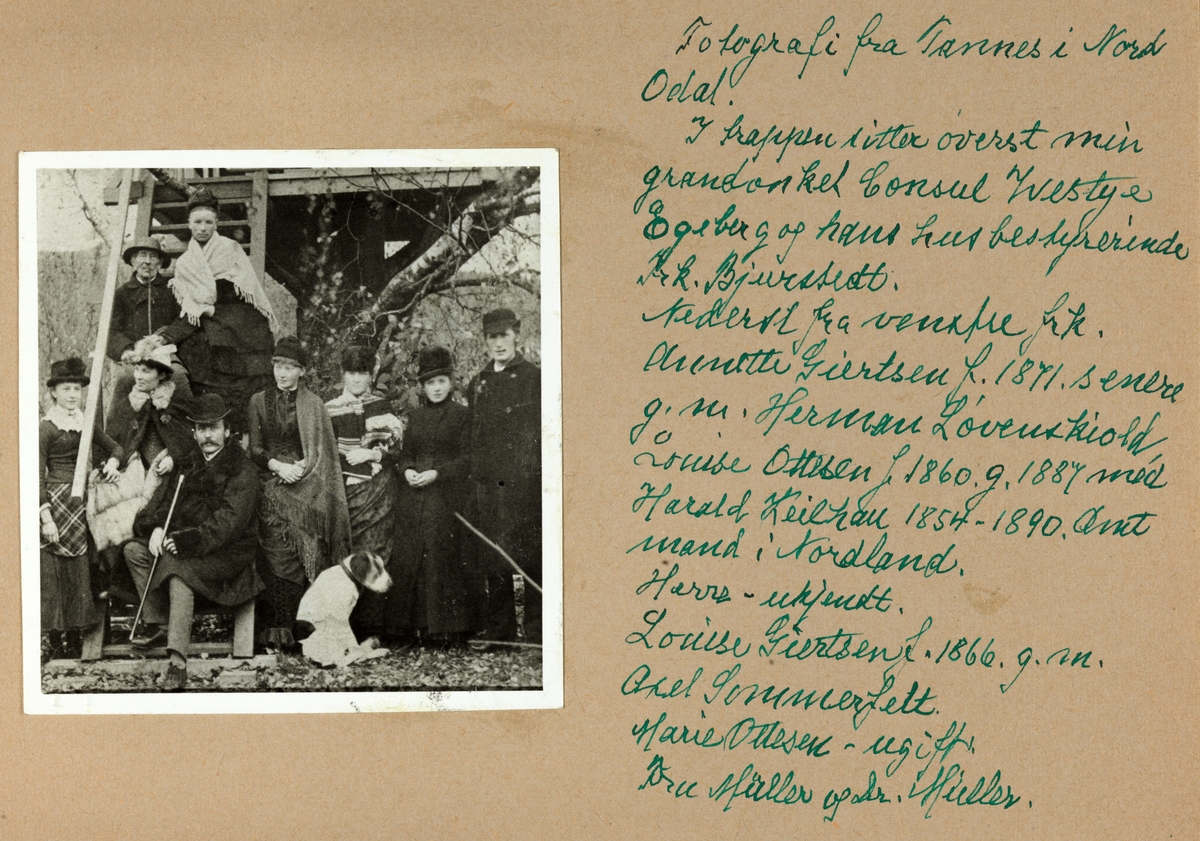 Fotografi fra Tannes i Nord
Odal.
I trappen sitter øverst min
grandonkel Consul Westye
Egeberg og hans husbestyrerinde
Frk. Bjurstedt.
Nederst fra venstre frk.
Annette Giertsen f. 1871. senere
g. m. Herman Løvenskiold
Louise Ottesen f. 1860. g. 1887 med
Harald Keilhau 1854-1890. Amt
mand i Nordland.
Herre - ukjendt.
Louise Giertsen f. 1866. g. m.
Axel Sommerfelt.
Marie Ottesen - ugift.
Fru Müller og Dr. Müller.